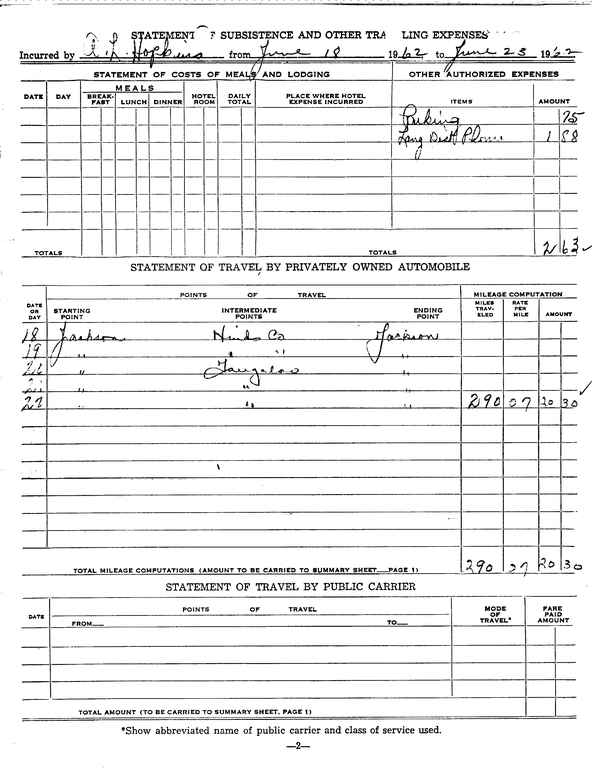 STATEMENT F SUBSISTENCE AND OTHER TRA LING EXPENSES
Incurred by A. L. Hopkins from June 18 1962 to June 23 1962
STATEMENT OF COSTS OF MEALS AND LODGING OTHER AUTHORIZED EXPENSES
DATE DAY MEALS BREAK-FAST LUNCH DINNER HOTEL ROOM DAILY TOTAL PLACE WHERE HOTEL EXPENSE INCURRED ITEMS AMOUNT
Parking 75
Long Dist Phone 1 88
TOTALS TOTALS 2 63
STATEMENT OF TRAVEL BY PRIVATELY OWNED AUTOMOBILE
POINTS OF TRAVEL MILEAGE COMPUTATION
DATE OR DAY STARTING POINT INTERMEDIATE POINTS ENDING POINT MILES TRAV-ELED RATE PER MILE AMOUNT
18 Jackson Hinds Co Jackson
19 " " " "
" Tougaloo
" " "
22 " " 290 07 20 30
TOTAL MILEAGE COMPUTATIONS (AMOUNT TO BE CARRIED TO SUMMARY SHEET PAGE 1) 290 07 20 30
STATEMENT OF TRAVEL BY PUBLIC CARRIER
DATE POINTS OF TRAVEL MODE OF TRAVEL* FARE PAID AMOUNT
FROM TO
TOTAL AMOUNT (TO BE CARRIED TO SUMMARY SHEET, PAGE 1)
*Show abbreviated name of public carrier and class of service used.
—2—